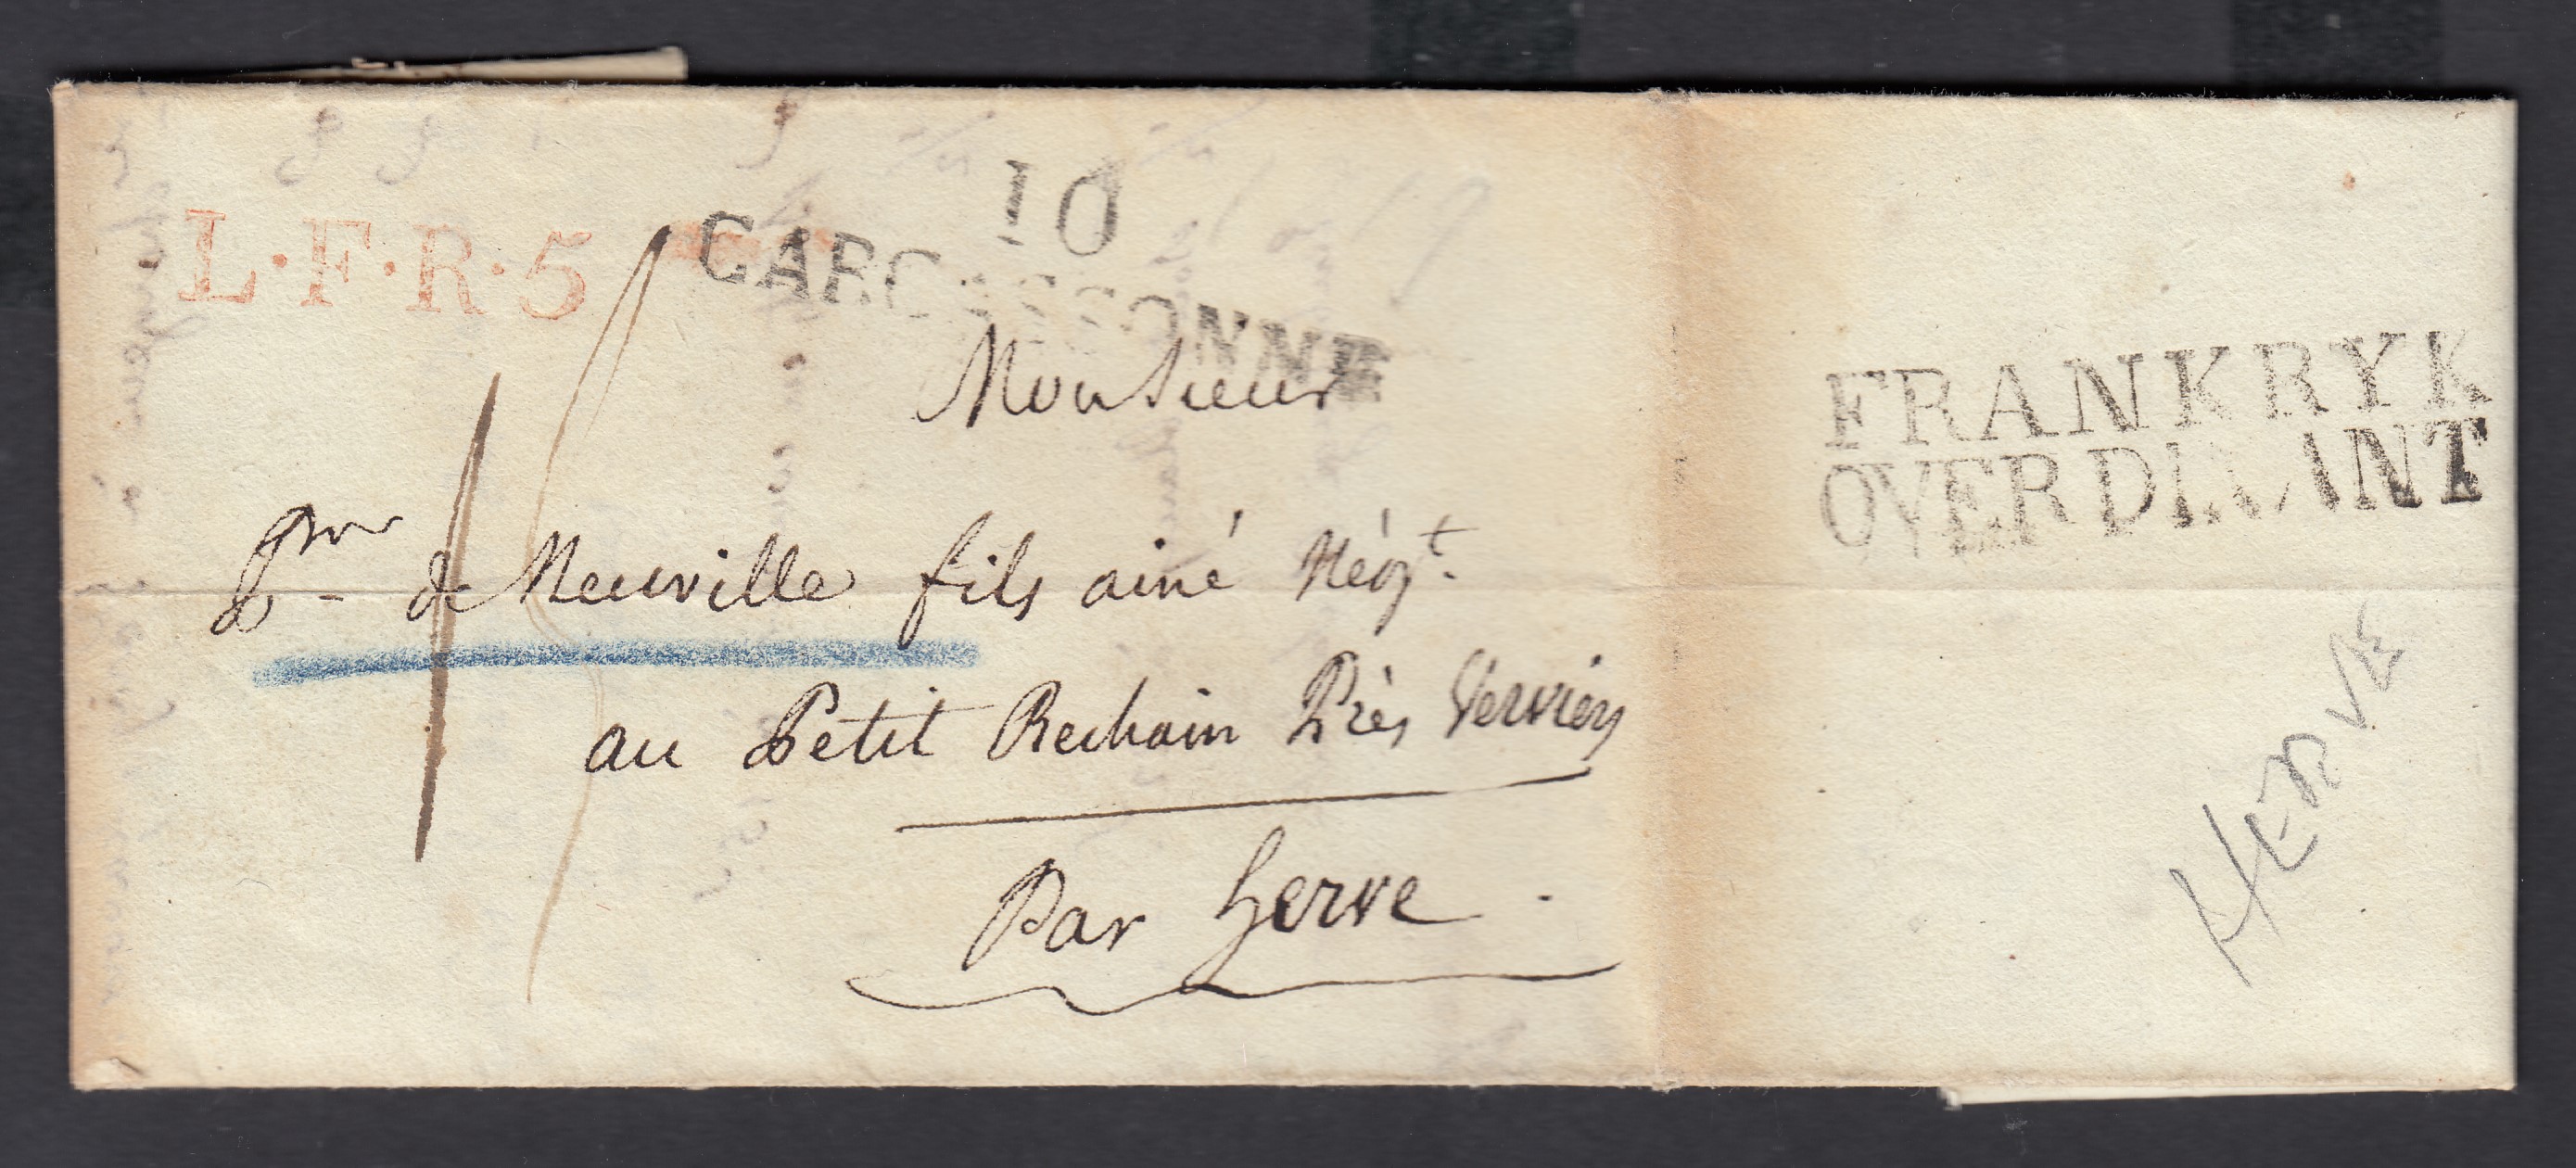 L.F.R.5
10
CARCASSONNE
Monsieur
de Neuville fils ainé Négt.
au Petit Rechain Près Verviers
Par Herve
FRANKRYK
OVER DINANT
HERVE